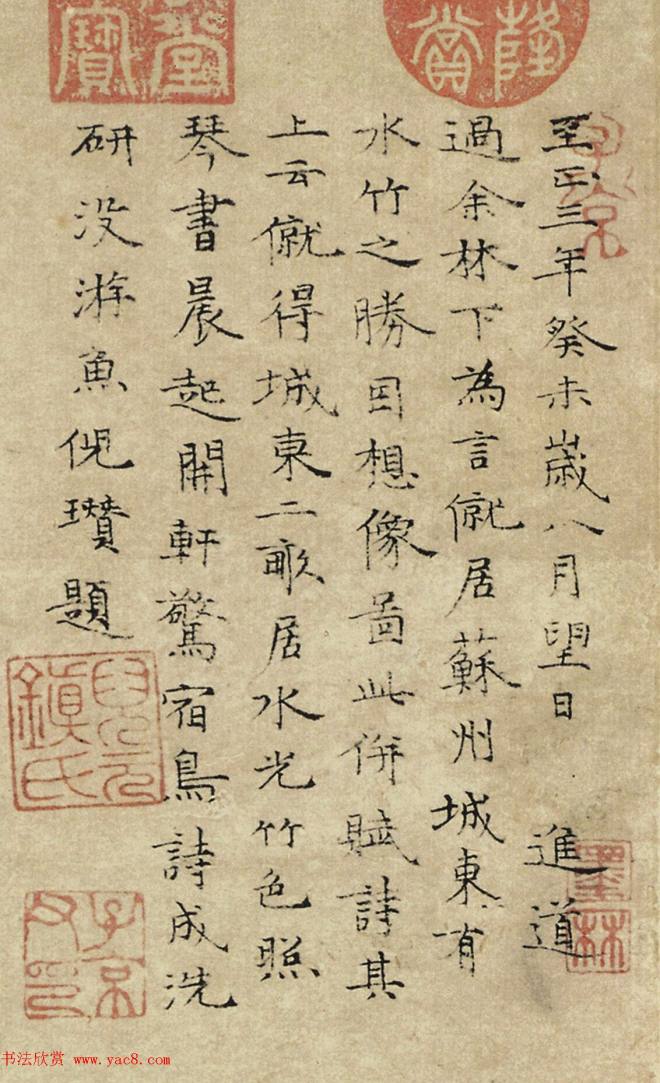 至正三年癸未歲八月望日 進道
過余林下為言僦居蘇州城東有
水竹之勝因想像啚此併賦詩其
上云僦得城東二畝居水光竹色照
琴書晨起開軒驚宿鳥詩成洗
研没游魚倪瓚題
寶 堂
賞 隆
子京
墨林
倪元鎮氏
子京父印
书法欣赏 www.yac8.com